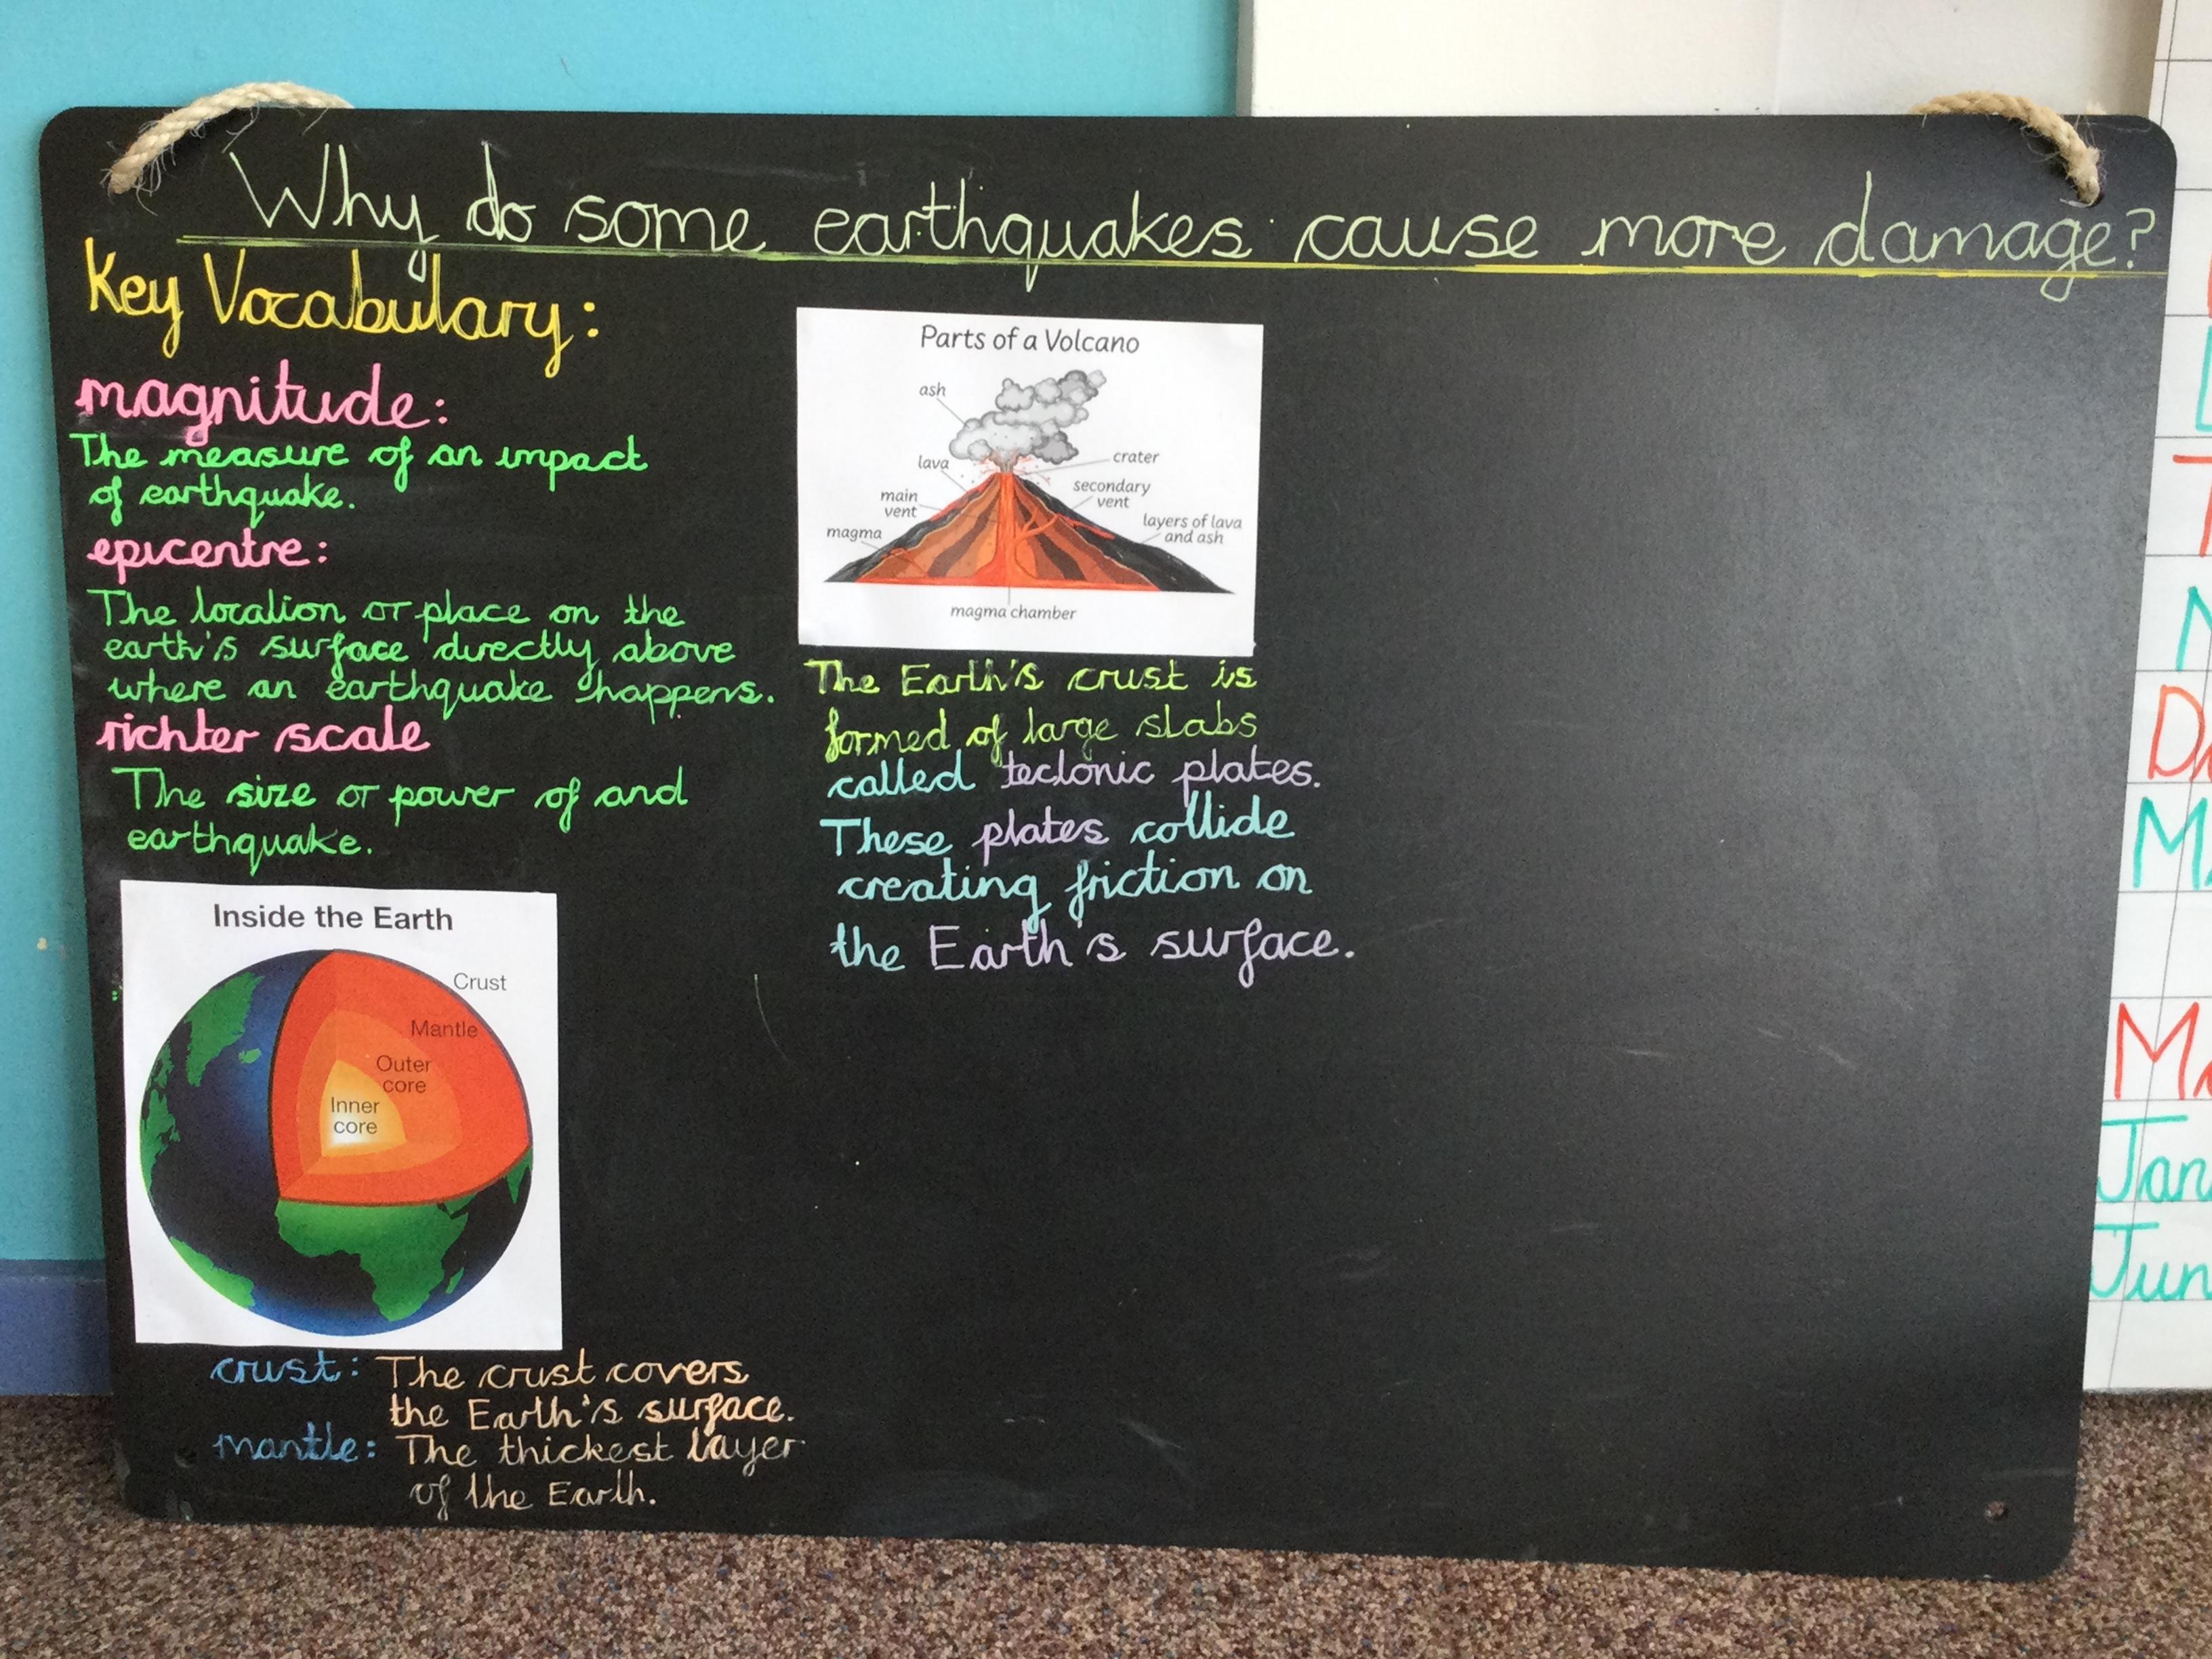 Why do some earthquakes cause more damage?
Key Vocabulary:
magnitude:
The measure of an impact
of earthquake.
epicentre:
The location or place on the
earth's surface directly above
where an earthquake happens.
richter scale
The size or power of and
earthquake.
Inside the Earth
Crust
Mantle
Outer
core
Inner
core
crust: The crust covers
the Earth's surface.
mantle: The thickest layer
of the Earth.
Parts of a Volcano
ash
lava
crater
main
vent
secondary
vent
magma
layers of lava
and ash
magma chamber
The Earth's crust is
formed of large slabs
called tectonic plates.
These plates collide
creating friction on
the Earth's surface.
Jan
Jun